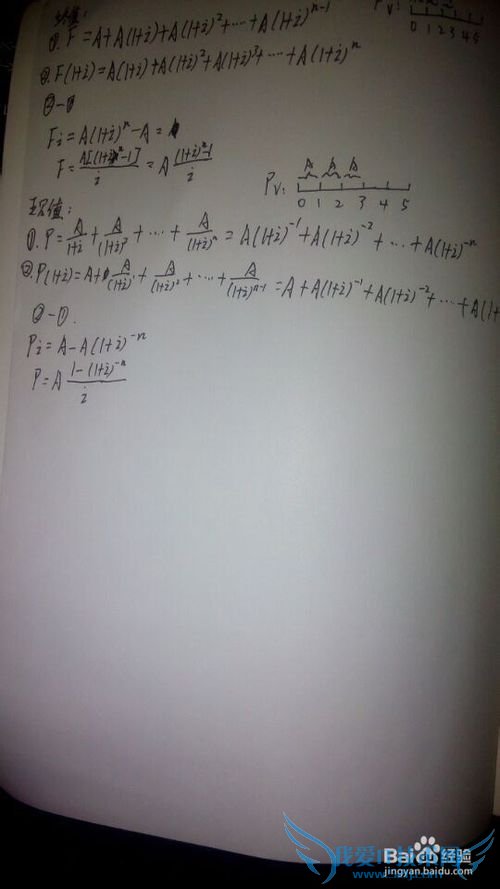 终值:
①. F = A + A(1+i) + A(1+i)² + ··· + A(1+i)ⁿ⁻¹
PV:
0 1 2 3 4 5
②. F(1+i) = A(1+i) + A(1+i)² + A(1+i)³ + ··· + A(1+i)ⁿ
②-①
Fi = A(1+i)ⁿ - A =
F = A[(1+i)ⁿ-1]/i = A (1+i)ⁿ-1/i
PV:
A A A
0 1 2 3 4 5
现值:
①. P = A/1+i + A/(1+i)² + ··· + A/(1+i)ⁿ = A(1+i)⁻¹ + A(1+i)⁻² + ··· + A(1+i)⁻ⁿ
②. P(1+i) = A + A/(1+i)¹ + A/(1+i)² + ··· + A/(1+i)ⁿ⁻¹ = A + A(1+i)⁻¹ + A(1+i)⁻² + ··· + A(1+
②-①.
Pi = A - A(1+i)⁻ⁿ
P = A 1-(1+i)⁻ⁿ/i
Baidu 经验
jingyan.baidu.com